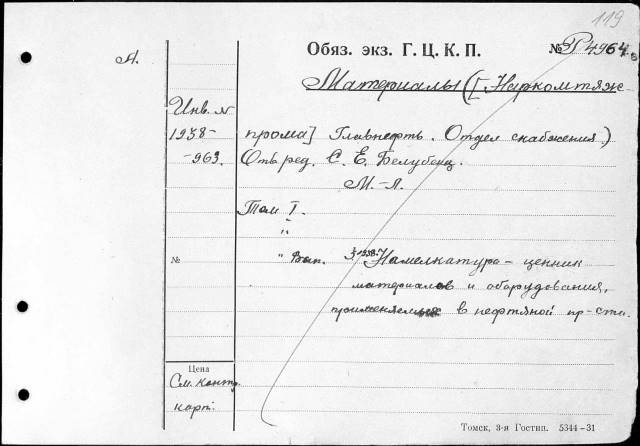 119
А.
Обяз. экз. Г. Ц. К. П. № П 4964
Материалы ([Наркомтяж-
Инв. №
1938- прома] Главнефть. Отдел снабжения.)
-963. Отв. ред. С. Е. Белубенц.
М.-Л.
Том I.
"
№ " Вып. 3, 1938. Намелкатура - ценник
материалов и оборудования,
применяемых в нефтяной пр-сти.
Цена
См. контр.
карт.
Томск, 3-я Гостип. 5344-31